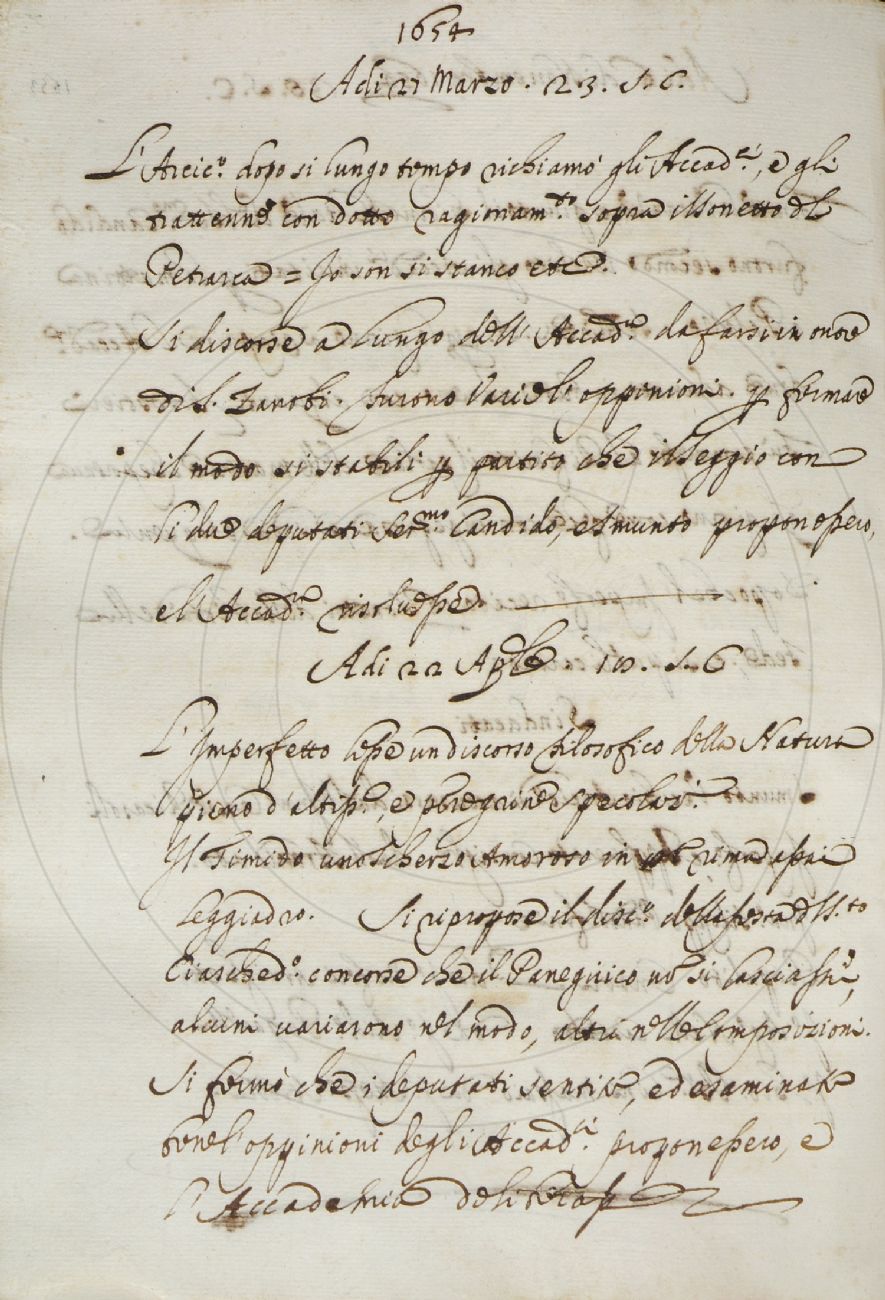 1654
Adi 27 Marzo . 23. s. 6.
L'Arcic.º dopo si lungo tempo richiamò gli Accad.ci, e gli
trattenne con dotto ragionam.to sopra il sonetto del
Petrarca = Io son si stanco etc.
Si discorse a lungo dell' Accad.ª da farsi in onore
di S. Zanobi. Furono varie l'oppenioni. p fermare
il modo si stabilì p partito che il Seggio con
li due deputati Ser.mo Candido, e Smunto proponessero,
e l'Accad.ª risoluesse.
Adi 22 Aple 10. s. 6
L'Imperfetto lesse un discorso filosofico della Natura
pieno d'altiss.e, e peregrine specolaz.i
Il Timido uno scherzo Amoroso in rima assai
leggiadro. Si ripropose il disc.º della festa del S.to
Ciasched.º concorse che il Panegirico nõ si lasciassi,
alcuni uariarono nel modo, altri nelle Composizioni.
Si fermò che i deputati sentite, ed esaminate
bene l'oppinioni degli Accad.ci proponessero, e
l'Accademia deliberasse